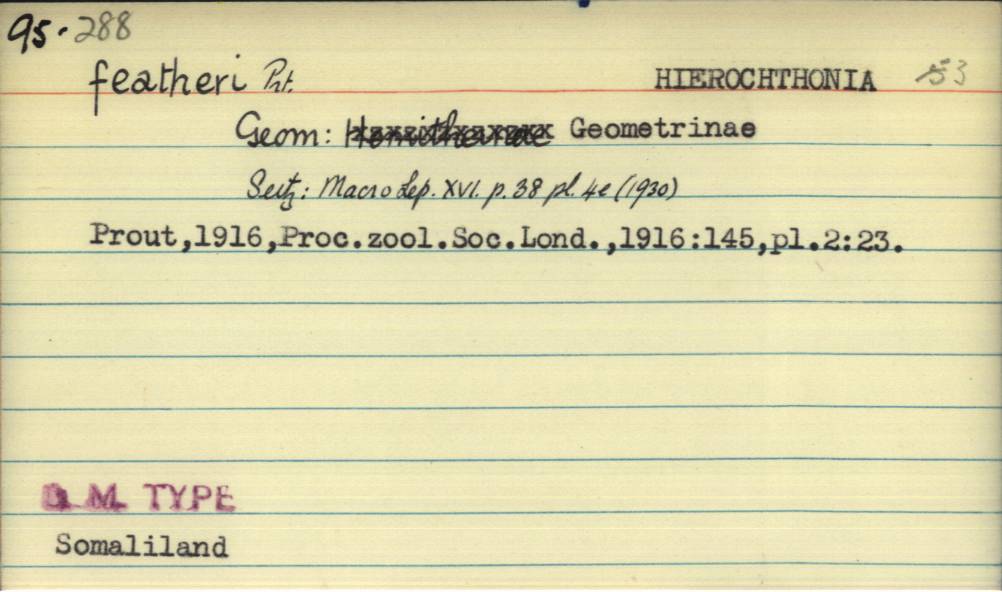 95.288
featheri Prt. HIEROCHTHONIA 53
Geom: Hemitheinae Geometrinae
Seitz: Macro Lep. XVI. p. 38 pl. 4e (1930)
Prout,1916,Proc.zool.Soc.Lond.,1916:145,pl.2:23.
B.M. TYPE
Somaliland